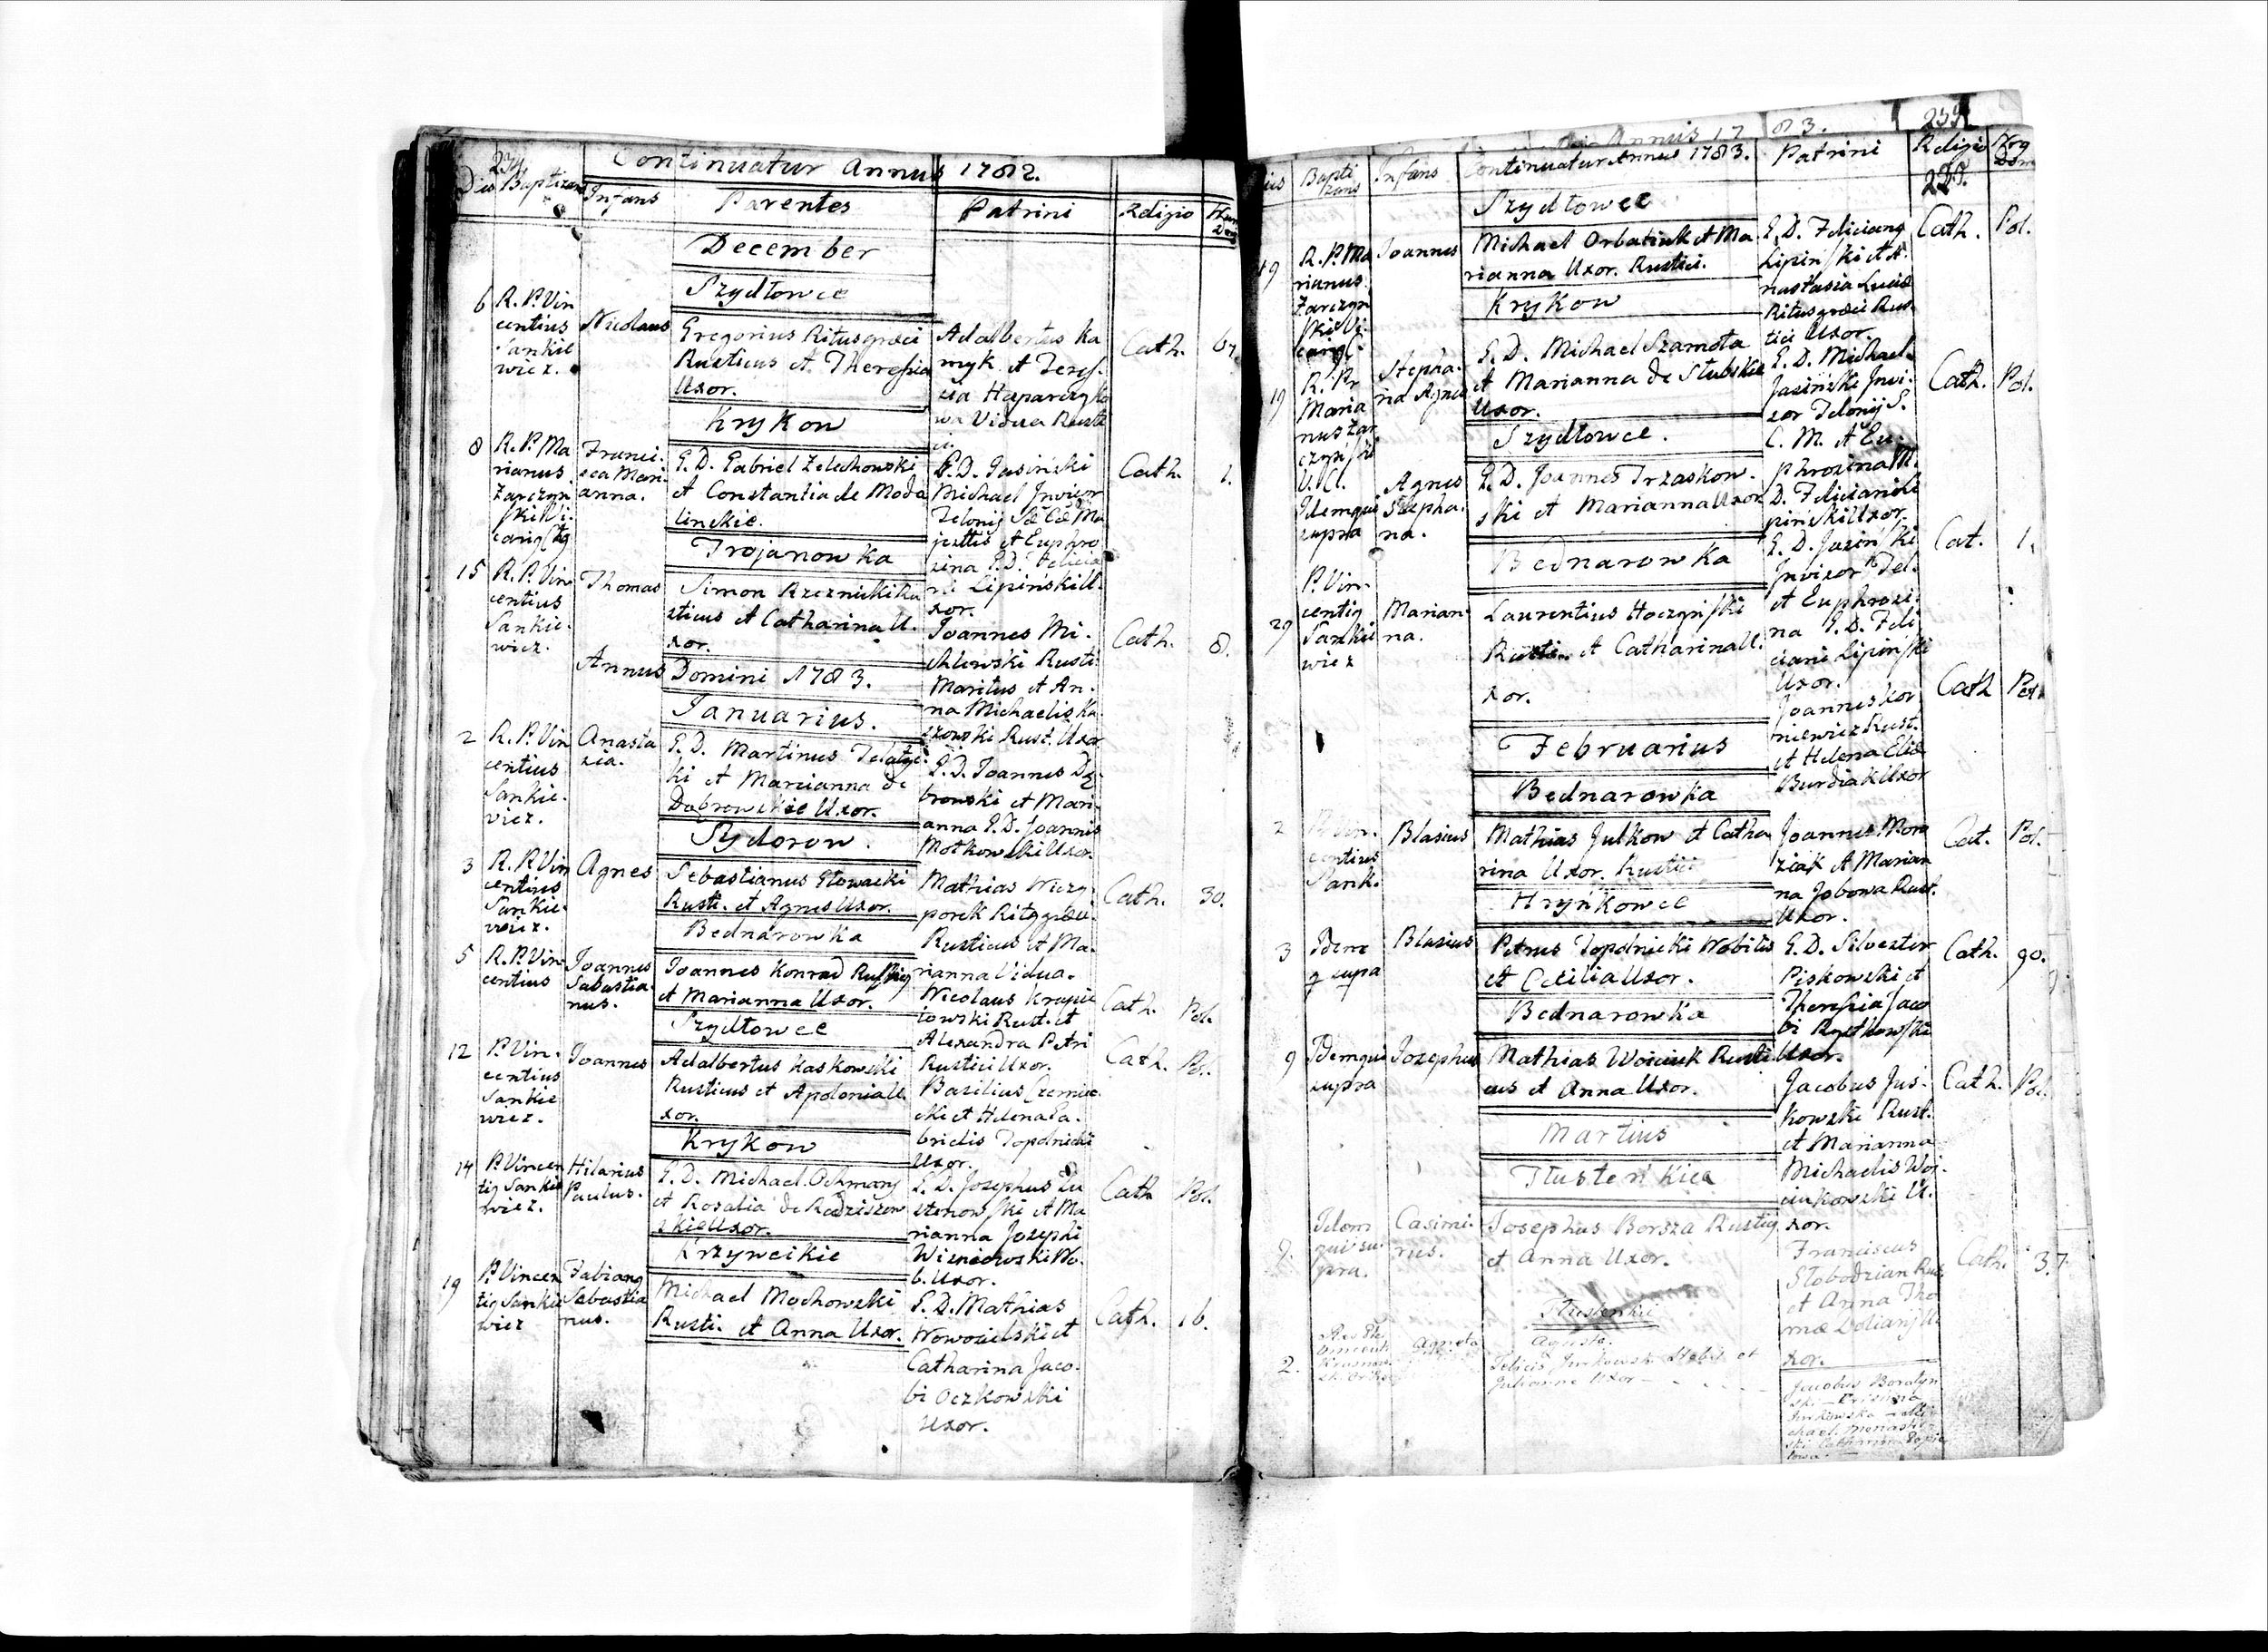 234
Continuatur Annus 1782.
Dies Baptizans Infans Parentes Patrini Religio
December
Szydlowce
6 R. P. Vin
centius
Sankie
wicz.
Nicolaus
Gregorius Ritusgræci
Rusticus et Theresia
Uxor.
Adalbertus Ka
myk et Teres.
wa Vidua Rusti
ci.
Cath.
Krykow
8 R. P. Ma
rianus
Zarczyn
ski Vi.
Franci.
sca Mari
anna.
G. D. Gabriel Zelechowski
et Constantia de Moda
linskie.
G. D. Jasiński
Michael Invisor
Telonij Sæ Cæ Ma
jesttis et Euphro
zina G. D. Felicia
ni Lipiński U.
xor.
Cath. 1.
Trojanowka
15 R. P. Vin
centius
Sankie.
wicz.
Thomas
Simon Rzeznicki Ru
sticus et Catharina U.
xor.
Joannes Mi.
chlowski Rusti.
Maritus et An.
na Michaelis Ka
szowski Rust. Uxor
Cath. 8.
Annus Domini 1783.
Januarius.
2 R. P. Vin
centius
Sankie.
wicz.
Anasta
zia.
G. D. Martinus
ki et Marianna de
Dąbrowskie Uxor.
G. D. Joannes Dą.
browski et Mari
anna G. D. Joannis
Motkowski Uxor.
Sydorow.
3 R. P. Vin
centius
Sankie.
wicz.
Agnes
Sebastianus Głowacki
Rusti. et Agnes Uxor.
Mathias
porek
Rusticus et Ma.
rianna Vidua.
Cath. 30.
Bednarowka
5 R. P. Vin
centius
Joannes
Sabastia
nus.
Joannes Konrad
et Marianna Uxor.
Nicolaus Krupie
lowski Rust. et
Alexandra Petri
Rustici Uxor.
Cath. Pol.
Szydlowce
12 P. Vin.
centius
Sankie
wicz.
Joannes
Adalbertus Kaskowski
Rusticus et Apolonia U.
xor.
Basilius
cki et Helena Ga.
brielis Topolnicki
Uxor.
Cath. Pol.
Krykow
14 P. Vincen
tig Sankie
wicz.
Hilarius
Paulus.
G. D. Michael Ochmany
et Rosalia de Redziszew
skie Uxor.
G. D. Josephus
et Ma
rianna Josephi
Wisniowski No.
b. Uxor.
Cath Pol.
Krzyweckie
19 P. Vincen
tig Sankie
wicz
Fabiang
Sebastia
nus.
Michael Mochowski
Rusti. et Anna Uxor.
G. D. Mathias
Nowosielski et
Catharina Jaco.
bi Oczkowski
Uxor.
Cath. 16.
Annus 1783.
235
Bapti
zans
Infans Continuatur Annus 1783. Patrini Religio
235.
Szydlowce
19 R. P. Ma
rianus
Zarczyn
ski Vi.
Joannes
Michael Orbatiuk et Ma
rianna Uxor. Rustici.
G. D. Feliciang
Lipinski et A.
nastasia Lucæ
Ritusgræci Rus.
tici Uxor.
Cath. Pol.
Krykow
19 R. P.
Maria
nus Zar
czynski
Stepha.
nia Agnes
G. D. Michael Szamota
et Marianna de Stubskie
Uxor.
G. D. Michael
Jasiński Invi.
sor Telonij S.
C. M. et Eu.
phrozina M.
D. Feliciani Li
pinski Uxor.
Cath. Pol.
Szydlowce.
Idemqui
supra
Agnes
Stepha.
na.
G. D. Joannes Trzaskow.
ski et Marianna Uxor
G. D. Jasinski
Invisor Tel.
et Euphrozi.
na G. D. Feli
ciani Lipinski
Uxor.
Cat. 1.
Bednarowka
29 P. Vin.
centig
Sankie
wicz
Marian
na.
Laurentius Hoczynski
Rusti. et Catharina U.
xor.
Joannes Kor
niewicz Rust.
et Helena Eliæ
Burdiak Uxor
Cath Pol.
Februarius
Bednarowka
2 P. Vin.
centius
Sank.
Blasius
Mathias Julkow et Catha
rina Uxor. Rustici
Joannes Mora
ziak et Marian
na Jobowa Rust.
Uxor.
Cat. Pol.
Hryńkowce
3 Idem
q supa
Blasius
Petrus Topolnicki Nobilis
et Cecilia Uxor.
G. D. Silvester
Piskowski et
Theresia Jaco
bi Rychkowski
Uxor.
Cath. 90.
Bednarowka
9 Idemqui
supra
Josephus
Mathias Woiciuk Rusti
cus et Anna Uxor.
Jacobus Jus.
kowski Rust.
et Marianna
Michaelis Woi.
ciukowski U.
xor.
Cath. Pol.
Martius
Tlusteńkie
2. Idem
qui su
pra.
Casimi.
rus.
Josephus Borsza Rusticg
et Anna Uxor.
Franciscus
Slobodzian Rus.
et Anna Tho
mæ Doliany U
xor.
Cath. 37
2.
Agneta
Julianna Uxor
Jacobus